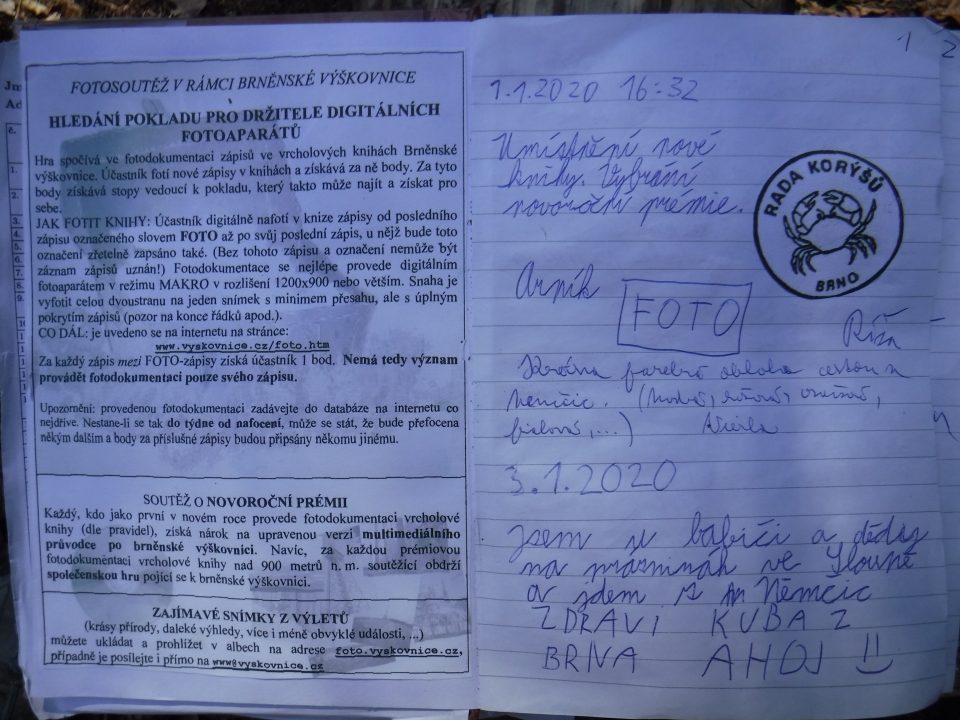 FOTOSOUTĚŽ V RÁMCI BRNĚNSKÉ VÝŠKOVNICE
HLEDÁNÍ POKLADU PRO DRŽITELE DIGITÁLNÍCH
FOTOAPARÁTŮ
Hra spočívá ve fotodokumentaci zápisů ve vrcholových knihách Brněnské
výškovnice. Účastník fotí nové zápisy v knihách a získává za ně body. Za tyto
body získává stopy vedoucí k pokladu, který takto může najít a získat pro
sebe.
JAK FOTIT KNIHY: Účastník digitálně nafotí v knize zápisy od posledního
zápisu označeného slovem FOTO až po svůj poslední zápis, u nějž bude toto
označení zřetelně zapsáno také. (Bez tohoto zápisu a označení nemůže být
záznam zápisů uznán!) Fotodokumentace se nejlépe provede digitálním
fotoaparátem v režimu MAKRO v rozlišení 1200x900 nebo větším. Snaha je
vyfotit celou dvoustranu na jeden snímek s minimem přesahu, ale s úplným
pokrytím zápisů (pozor na konce řádků apod.).
CO DÁL: je uvedeno se na internetu na stránce:
www.vyskovnice.cz/foto.htm
Za každý zápis mezi FOTO-zápisy získá účastník 1 bod. Nemá tedy význam
provádět fotodokumentaci pouze svého zápisu.
Upozornění: provedenou fotodokumentaci zadávejte do databáze na internetu co
nejdříve. Nestane-li se tak do týdne od nafocení, může se stát, že bude přefocena
někým dalším a body za příslušné zápisy budou připsány někomu jinému.
SOUTĚŽ O NOVOROČNÍ PRÉMII
Každý, kdo jako první v novém roce provede fotodokumentaci vrcholové
knihy (dle pravidel), získá nárok na upravenou verzi multimediálního
průvodce po brněnské výškovnici. Navíc, za každou prémiovou
fotodokumentaci vrcholové knihy nad 900 metrů n. m. soutěžící obdrží
společenskou hru pojící se k brněnské výškovnici.
ZAJÍMAVÉ SNÍMKY Z VÝLETŮ
(krásy přírody, daleké výhledy, více i méně obvyklé události, ...)
můžete ukládat a prohlížet v albech na adrese foto.vyskovnice.cz,
případně je posílejte i přímo na www@vyskovnice.cz
1 2
1.1.2020 16:32
Umístnění nové
knihy. Vybrání
novoroční prémie.
RADA KORÝŠŮ
BRNO
Arník
FOTO
Ríša
Krásna farebná obloha cestou z
Nemčic.
fialová, ...)
3.1.2020
Jsem u babiči a dědy
na prázninách ve Sloupě
a jdem s Němčic
ZDRAVÍ KUBA Z
BRNA AHOJ